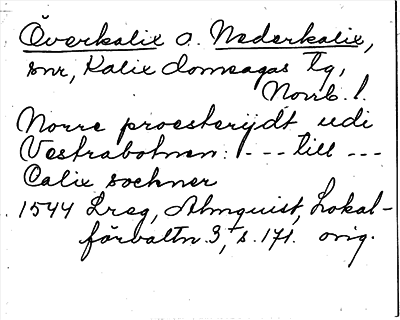 Överkalix o. Nederkalix,
snr, Kalix domsagas tg,
Norrb. l.
Norre proesterijdt udi
Vestrabotnen: --- till ---
Calix sochner
1544 Lreg, Almquist, Lokal-
förvaltn. 3, s. 171. orig.